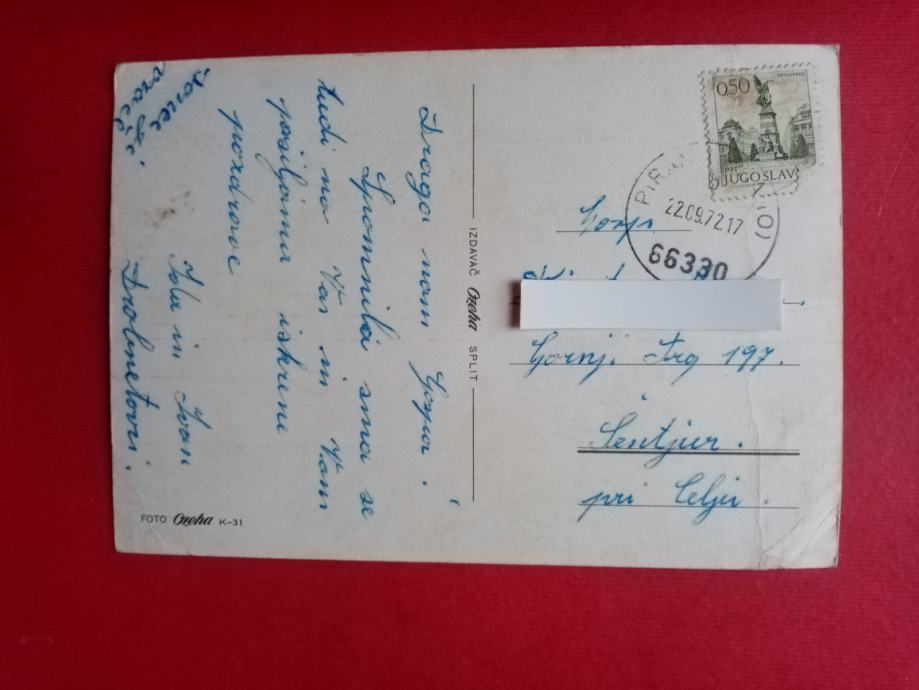 Draga nam Gospa!
Spomnila sma se
tudi na Vas in Vam
pošiljama iskrene
pozdrave
Ivan
Drobnetovi.
IZDAVAČ Ozeha SPLIT
FOTO Ozeha K-31
0,50
JUGOSLAV
PIR
22.09.72.17
66330
Gospa
Gornji Trg 197.
Šentjur.
pri Celju.